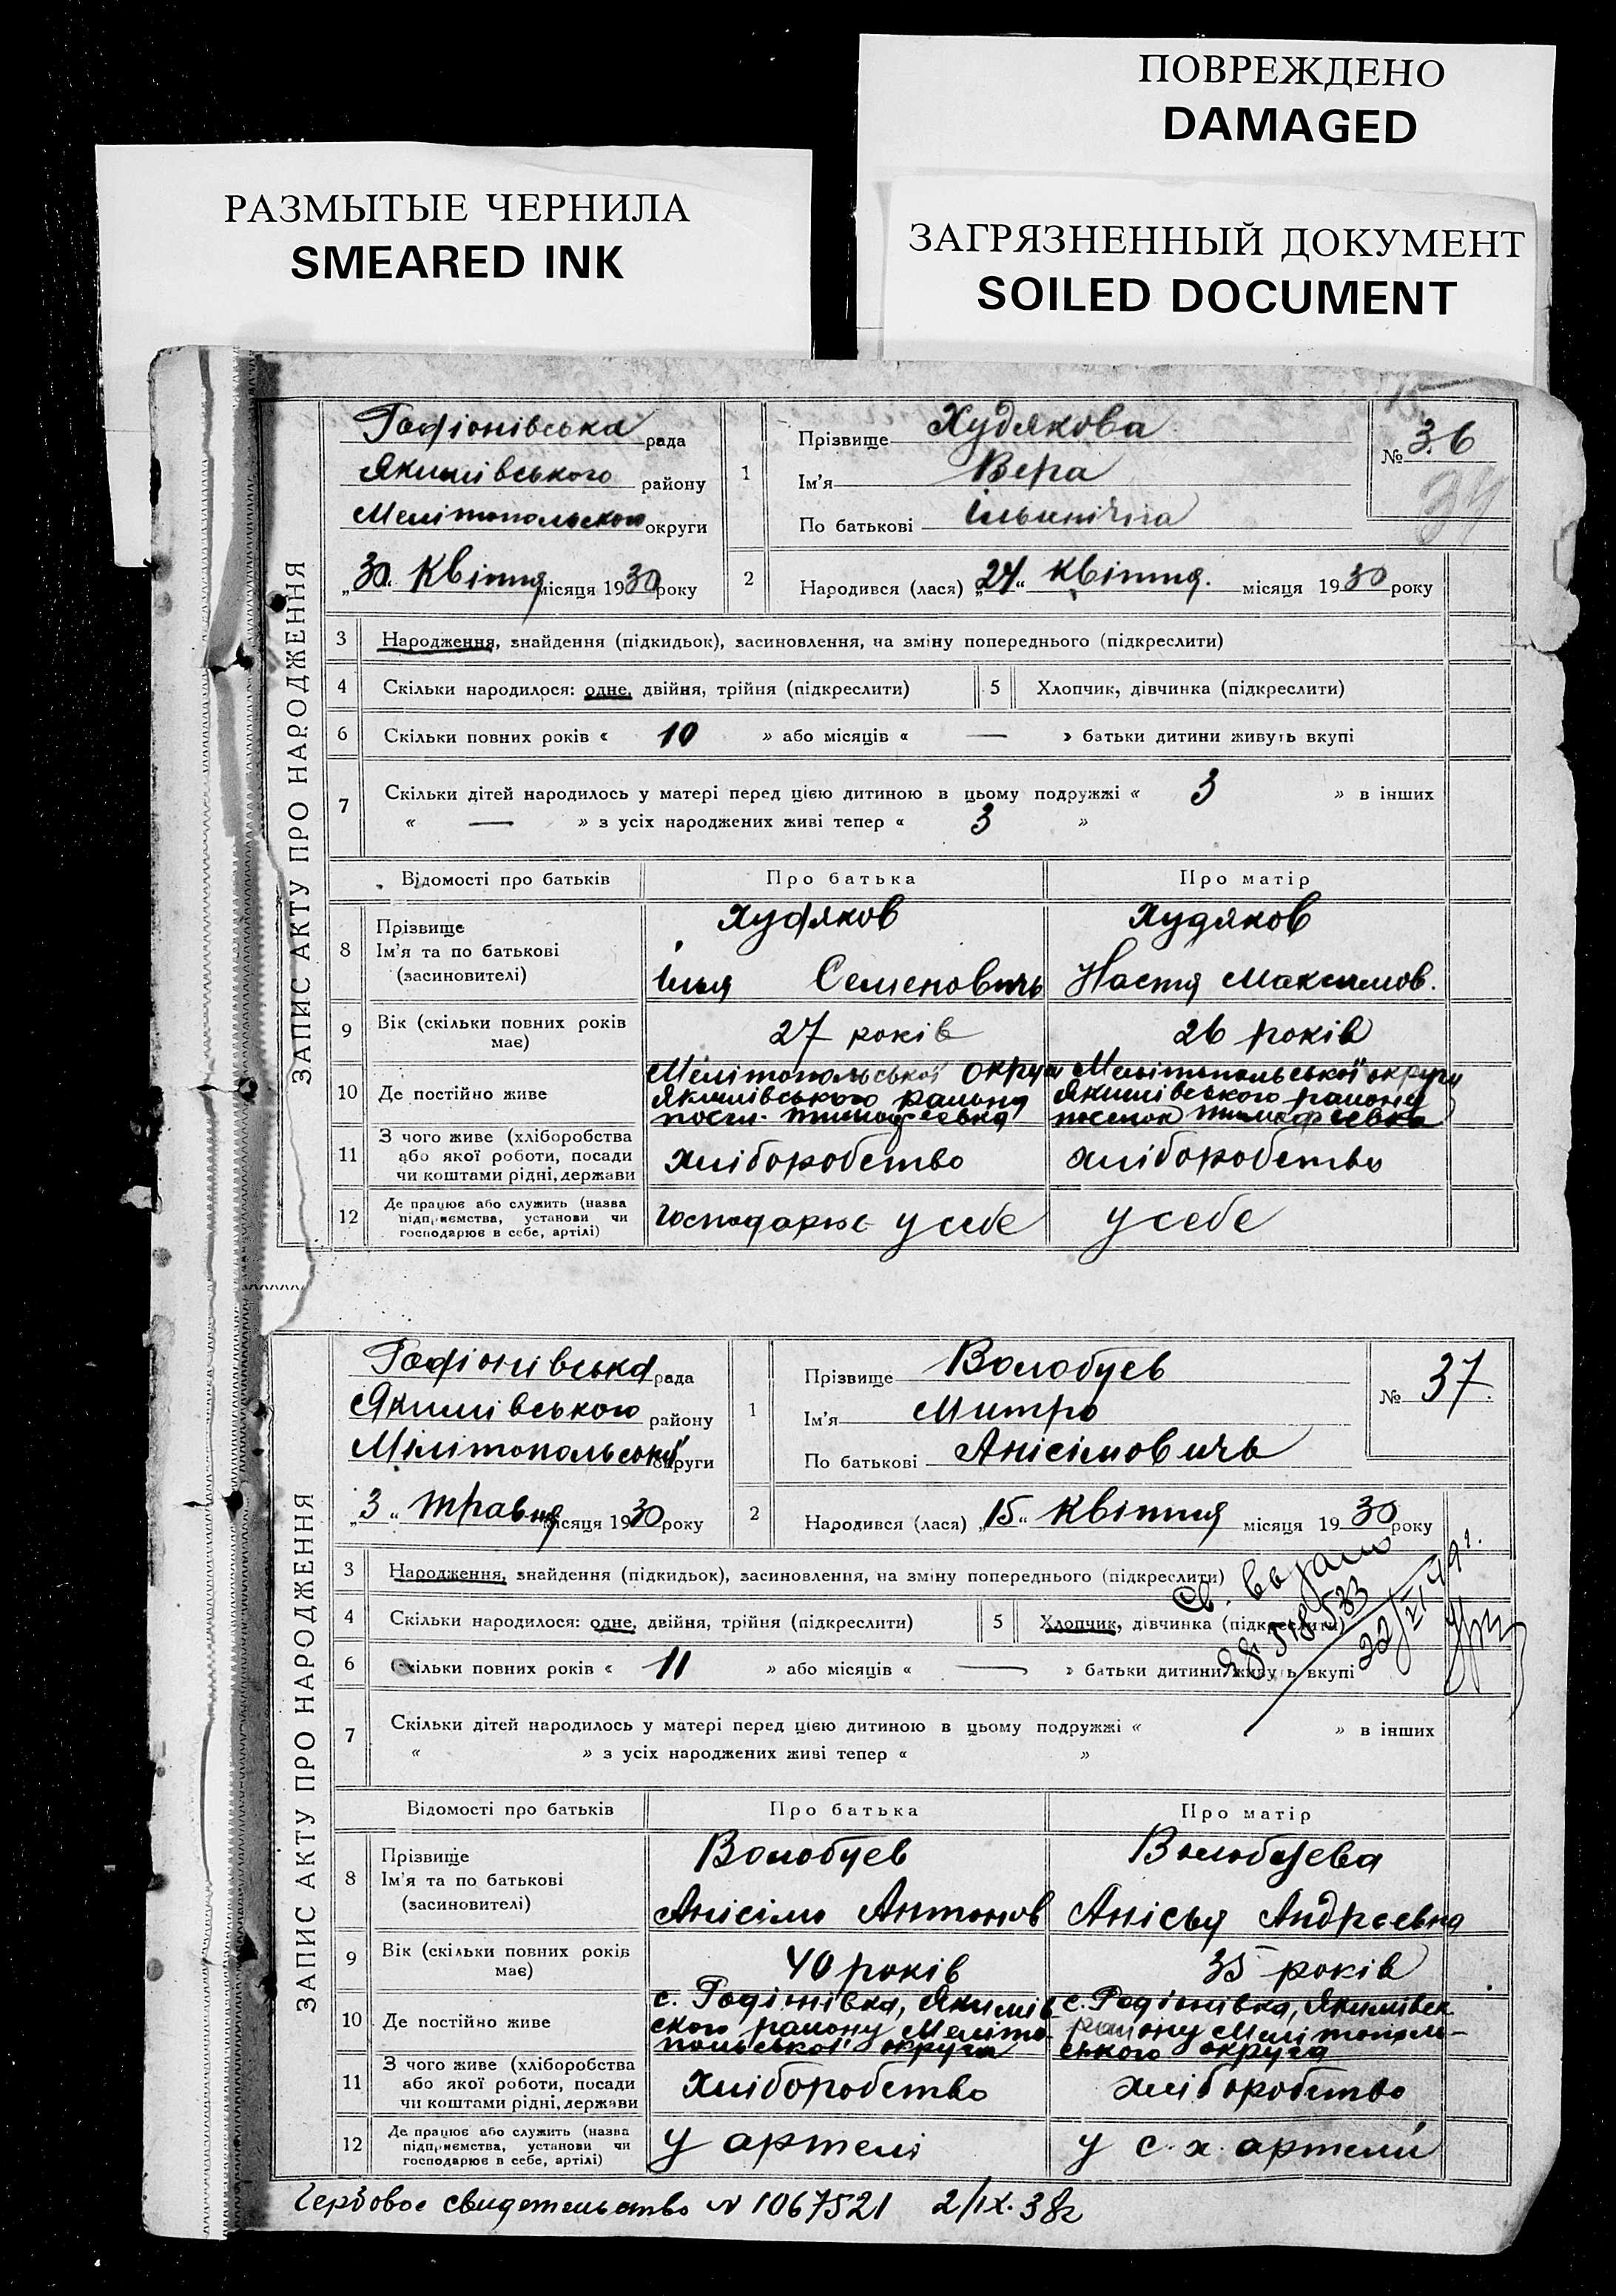 ПОВРЕЖДЕНО
DAMAGED
РАЗМЫТЫЕ ЧЕРНИЛА
SMEARED INK
ЗАГРЯЗНЕННЫЙ ДОКУМЕНТ
SOILED DOCUMENT
ЗАПИС АКТУ ПРО НАРОДЖЕННЯ
Радіонівська рада
Якимівського району
Мелітопольского округи
„30„ Квітня місяця 1930 року
1 Прізвище Худякова
Ім'я Вера
По батькові Ільинічна
№ 36
34
2 Народився (лася) „24„ Квітня. місяця 1930 року
3 Народження, знайдення (підкидьок), засиновлення, на зміну попереднього (підкреслити)
4 Скільки народилося: одне, двійня, трійня (підкреслити) 5 Хлопчик, дівчинка (підкреслити)
6 Скільки повних років « 10 » або місяців « — » батьки дитини живуть вкупі
7 Скільки дітей народилось у матері перед цією дитиною в цьому подружжі « 3 » в інших
« — » з усіх народжених живі тепер « 3 »
Відомості про батьків Про батька Про матір
8 Прізвище Ім'я та по батькові (засиновителі)
Худяков Худяков
Ілья Семеновичь Настя Максимов.
9 Вік (скільки повних років має) 27 років 26 років
10 Де постійно живе
Мелітопольської округи Мелітопольської округи
Якимівського района Якимівського района
посл. Тимофеевка поселок Тимофеевка
11 З чого живе (хліборобства або якої роботи, посади чи коштами рідні, держави
хліборобство хліборобство
12 Де працює або служить (назва підприємства, установи чи господарює в себе, артілі)
господарює у себе у себе
ЗАПИС АКТУ ПРО НАРОДЖЕННЯ
Радіонівська рада
Якимівського району
Мілітопольської округи
„3„ травня місяця 1930 року
1 Прізвище Волобуев
Ім'я Митро
По батькові Анісімовичь
№ 37.
2 Народився (лася) „15„ Квітня місяця 1930 року
3 Народження, знайдення (підкидьок), засиновлення, на зміну попереднього (підкреслити)
4 Скільки народилося: одне, двійня, трійня (підкреслити) 5 Хлопчик, дівчинка (підкреслити)
6 Скільки повних років « 11 » або місяців « — » батьки дитини живуть вкупі
7 Скільки дітей народилось у матері перед цією дитиною в цьому подружжі « » в інших
« » з усіх народжених живі тепер « »
Св. выдано
Відомості про батьків Про батька Про матір
8 Прізвище Ім'я та по батькові (засиновителі)
Волобуев Волобуева
Анісім Антонов Анісья Андреевна
9 Вік (скільки повних років має) 40 років 35 років
10 Де постійно живе
с. Радіонівка, Якимів- с. Радіонівка, Якимівск.
ского району Меліто- району Мелітополь-
польської округи ського округа
11 З чого живе (хліборобства або якої роботи, посади чи коштами рідні, держави
хліборобство хліборобство
12 Де працює або служить (назва підприємства, установи чи господарює в себе, артілі)
у артелі у с. х. артели
Гербовое свидетельство N 1067521 2/IX. 38г